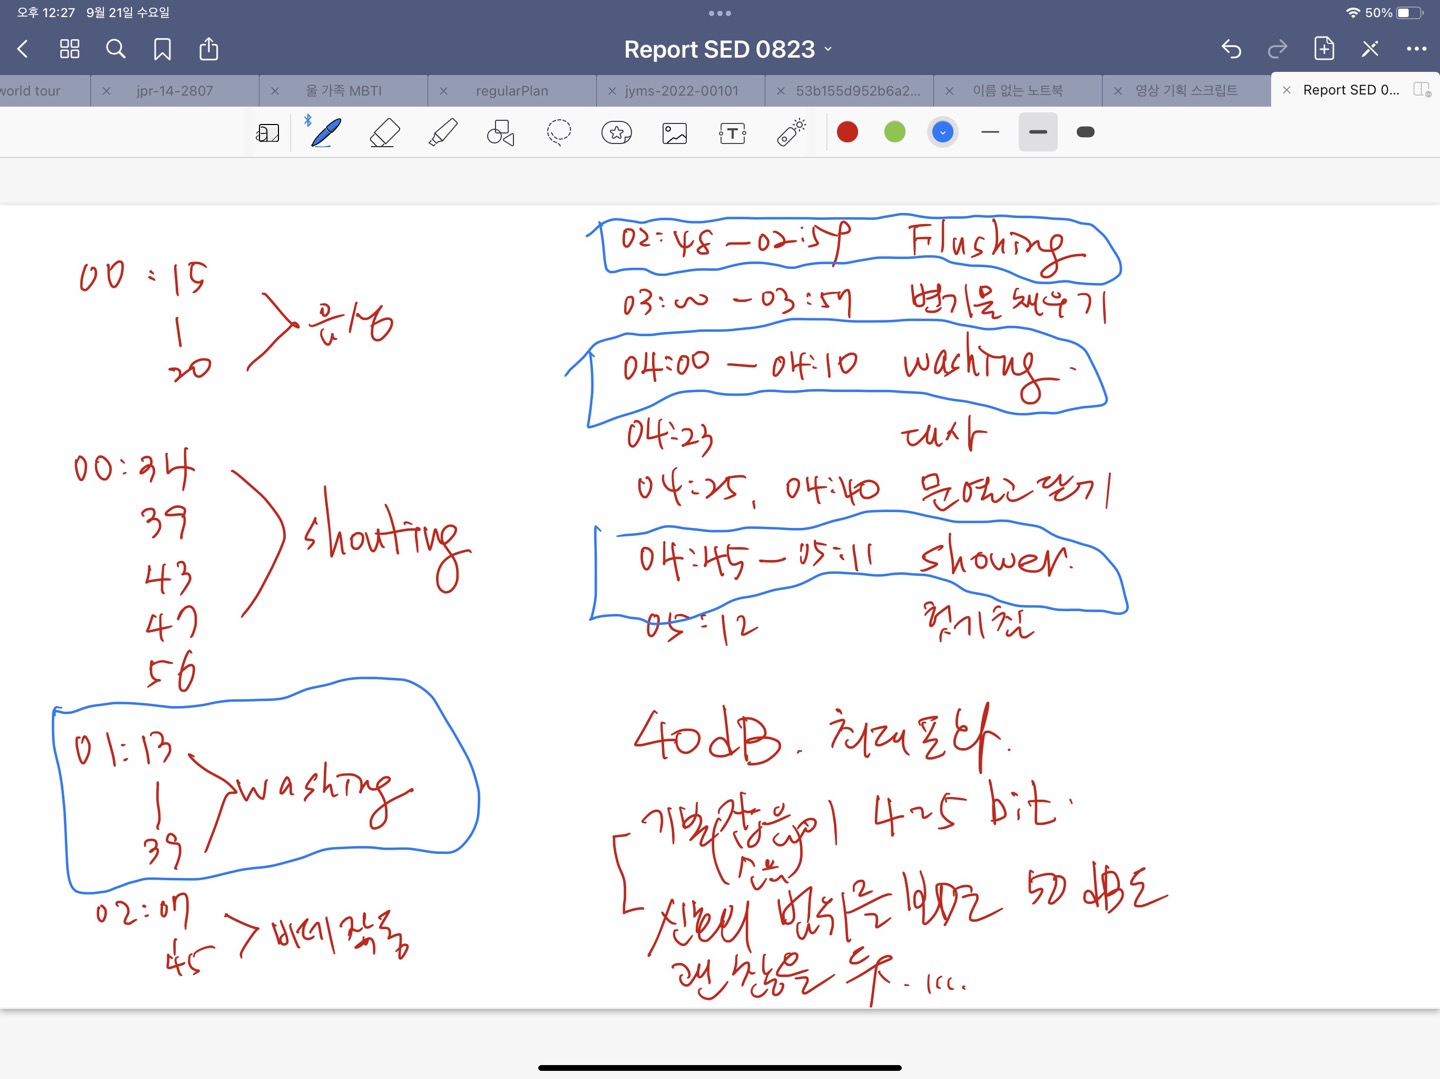 오후 12:27 9월 21일 수요일
50%
Report SED 0823
world tour
jpr-14-2807
울 가족 MBTI
regularPlan
jyms-2022-00101
53b155d952b6a2...
이름 없는 노트북
영상 기획 스크립트
Report SED 0...
00:15
20
음성
00:34
39
43
47
56
shouting
01:13
39
washing
02:07
45
비데작동
02:48 - 02:59 Flushing
03:00 - 03:57 변기물채우기
04:00 - 04:10 washing.
04:23 대사
04:25, 04:40 문열고닫기
04:45 - 05:11 shower.
05:12
40dB. 최대포화.
기별잡음이 4-5 bit.
신호의 범위를 50 dB도
괜찮을 듯....